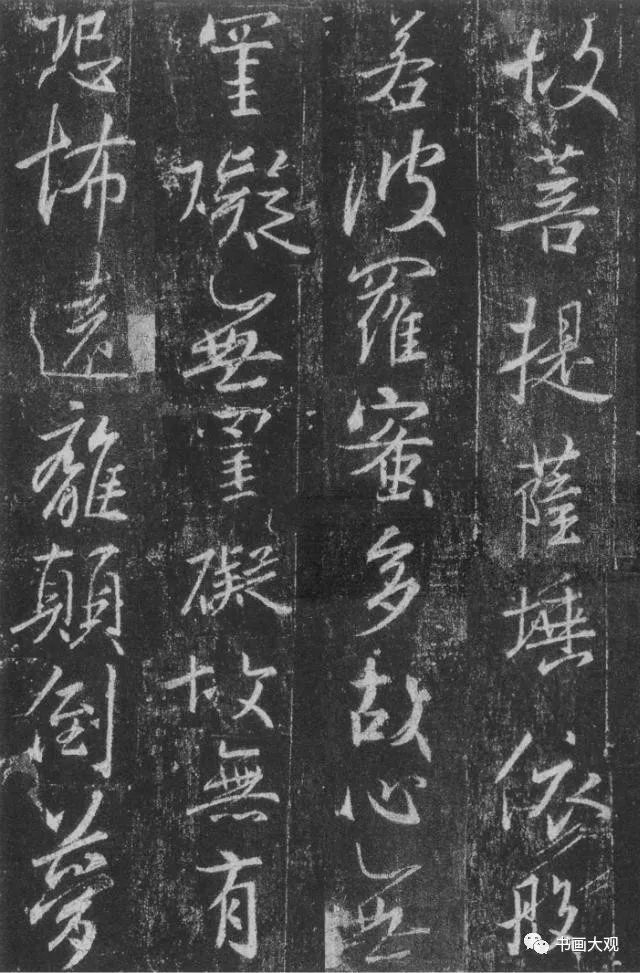 故菩提薩埵依般
若波羅蜜多故心無
罣礙無罣礙故無有
恐怖遠離顛倒夢
书画大观